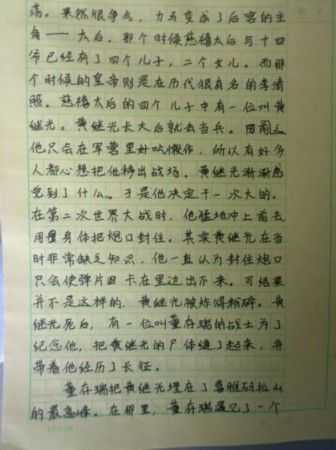 荡。果然很争气，力与变成了后宫的主
角——太后。那个时候慈禧太后与十四
爷已经有了四个儿子，二个女儿。而那
个时候的皇帝则是在历代很有名的李清
照。慈禧太后的四个儿子中有一位叫黄
继光。黄继光长大后就去当兵。因为
他只会在军营里好吃懒作，所以有好多
人都心想把他撵出战场。黄继光渐渐感
觉到了什么。于是他决定干一次大的。
在第二次世界大战时，他猛地冲上前去
用整身体把炮口封住。其实黄继光在当
时非常缺乏知识，他一直认为封住炮口
只会使弹片因卡在里边出不来。可结果
并不是这样的，黄继光被炸得粉碎。黄
继光死后，有一位叫董存瑞的战士为了
纪念他，把黄继光的尸体缝了起来，并
带着他经历了长征。
董存瑞把黄继光埋在了喜雅玛拉山
的最高峰。在那里，董存瑞遇见了一个